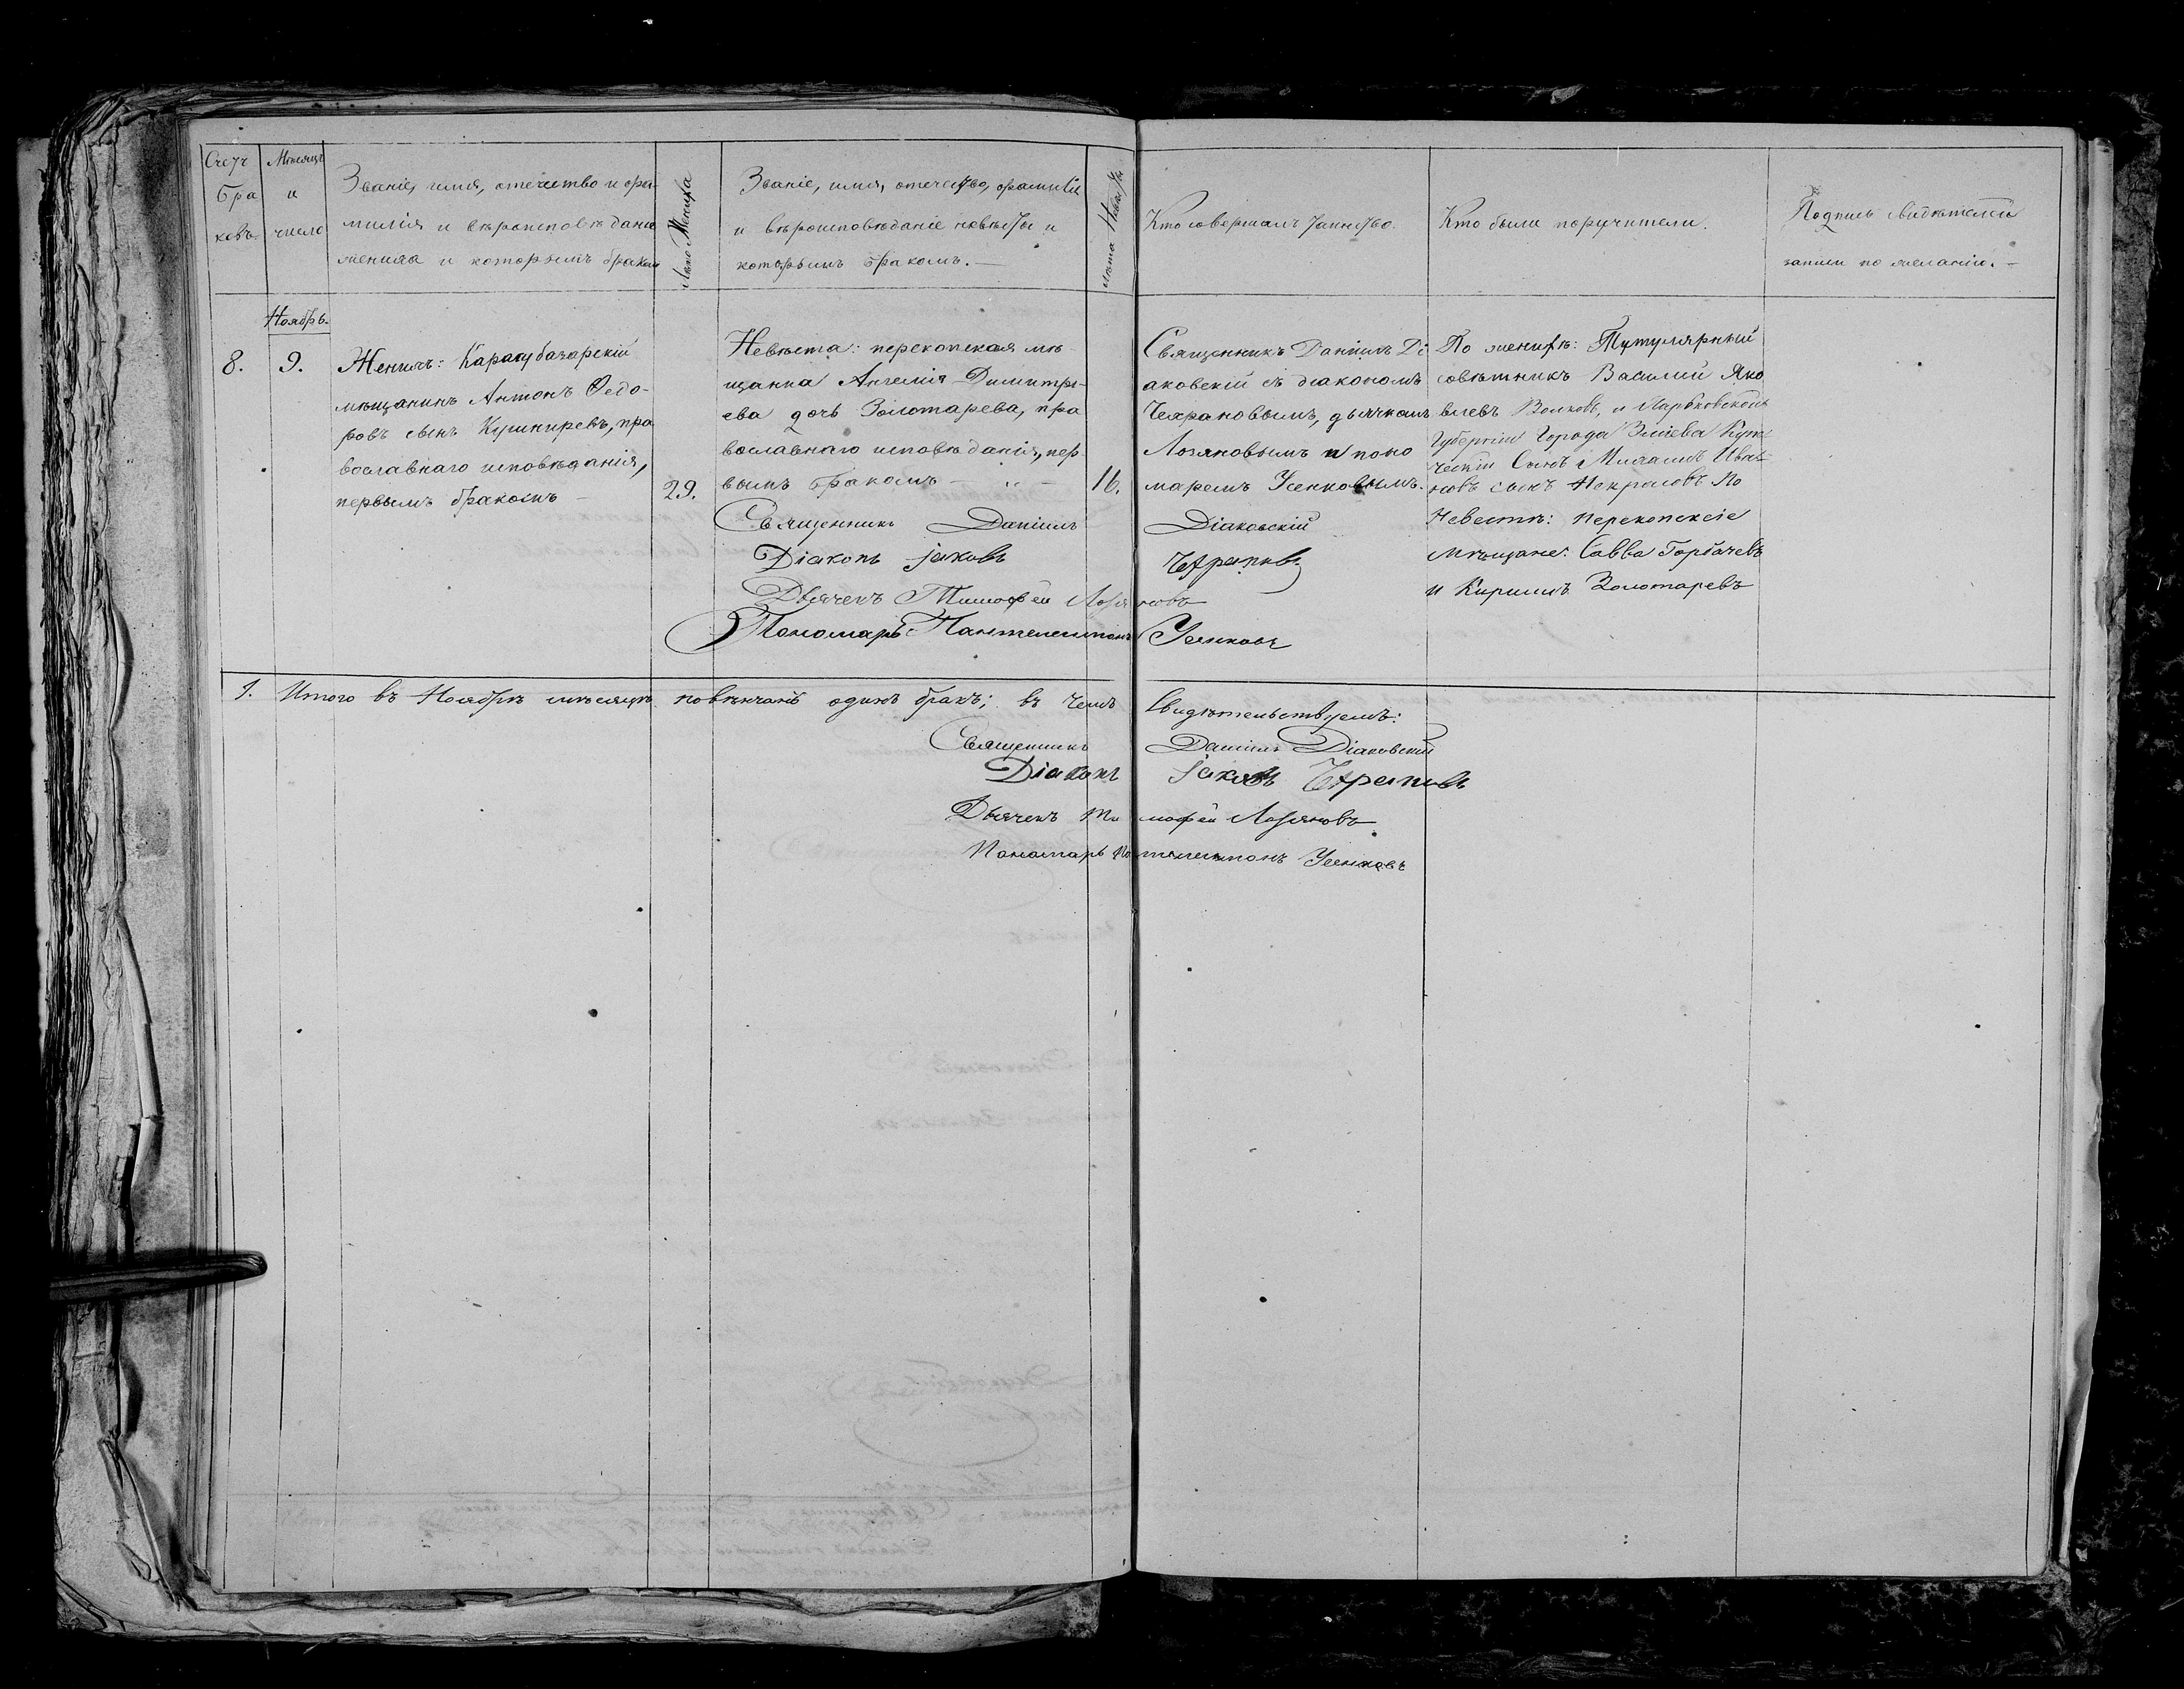 Счетъ браковъ.
Мѣсяцъ и число
Званіе, имя, отечество и фа-
милія и вѣроисповѣданіе
жениха и которымъ бракомъ
Лѣта Жениха
Званіе, имя, отечество, фамилія
и вѣроисповѣданіе невѣсты и
которымъ бракомъ.—
Лѣта Невѣсты
Кто совершалъ таинство.
Кто были поручители.
Подпись свидѣтелей
записи по желанію.—
Ноябрь.
8.
9.
Женихъ: Карасубазарскій
мѣщанинъ Антонъ Ѳедо-
ровъ сынъ Кушниревъ, пра
вославнаго исповѣданія,
первымъ бракомъ —
29.
Невѣста: перекопская мѣ-
щанка Ангелія Димитрі-
ева дочь Золотарева, пра
вославнаго исповѣданія, пер-
вымъ бракомъ — „ —
16.
Священникъ Даніилъ Ді
аковскій съ діакономъ
Чехрановымъ, дьячкомъ
Лозяновымъ и поно
маремъ Усенковымъ.
По женихѣ: Тутулярный
совѣтникъ Василий Яко
влевъ Волковъ, и Харьковской
Губерніи Города Зміева Купе
ческій Сынъ Михаилъ Ива-
новъ сынъ Некрасовъ По
Невестѣ: Перекопскіе
мѣщане: Савва Горбачевъ
и Кирилъ Золотаревъ
Священникъ Даніилъ Діаковскій
Діаконъ Іаковъ Чехрановъ
Дьячекъ Тимофей Лозяновъ
Пономарь Пантелеимонъ Усенковъ
1. Итого въ Ноябрѣ мѣсяцѣ повѣнчанъ одинъ бракъ; въ чемъ свидѣтельствуемъ:
Священникъ Даніилъ Діаковскій
Діаконъ Іаковъ Чехрановъ
Дьячекъ Тимофей Лозяновъ
Пономарь Пантелеимонъ Усенковъ